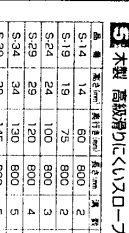 5 木製 高級滑りにくいスロープ
品番 高さmm 奥行きmm 長さmm 溝数
S-14 14 60 800 2
S-19 19 75 800 2
S-24 24 100 800 3
S-29 29 120 800 4
S-34 34 130 800 5